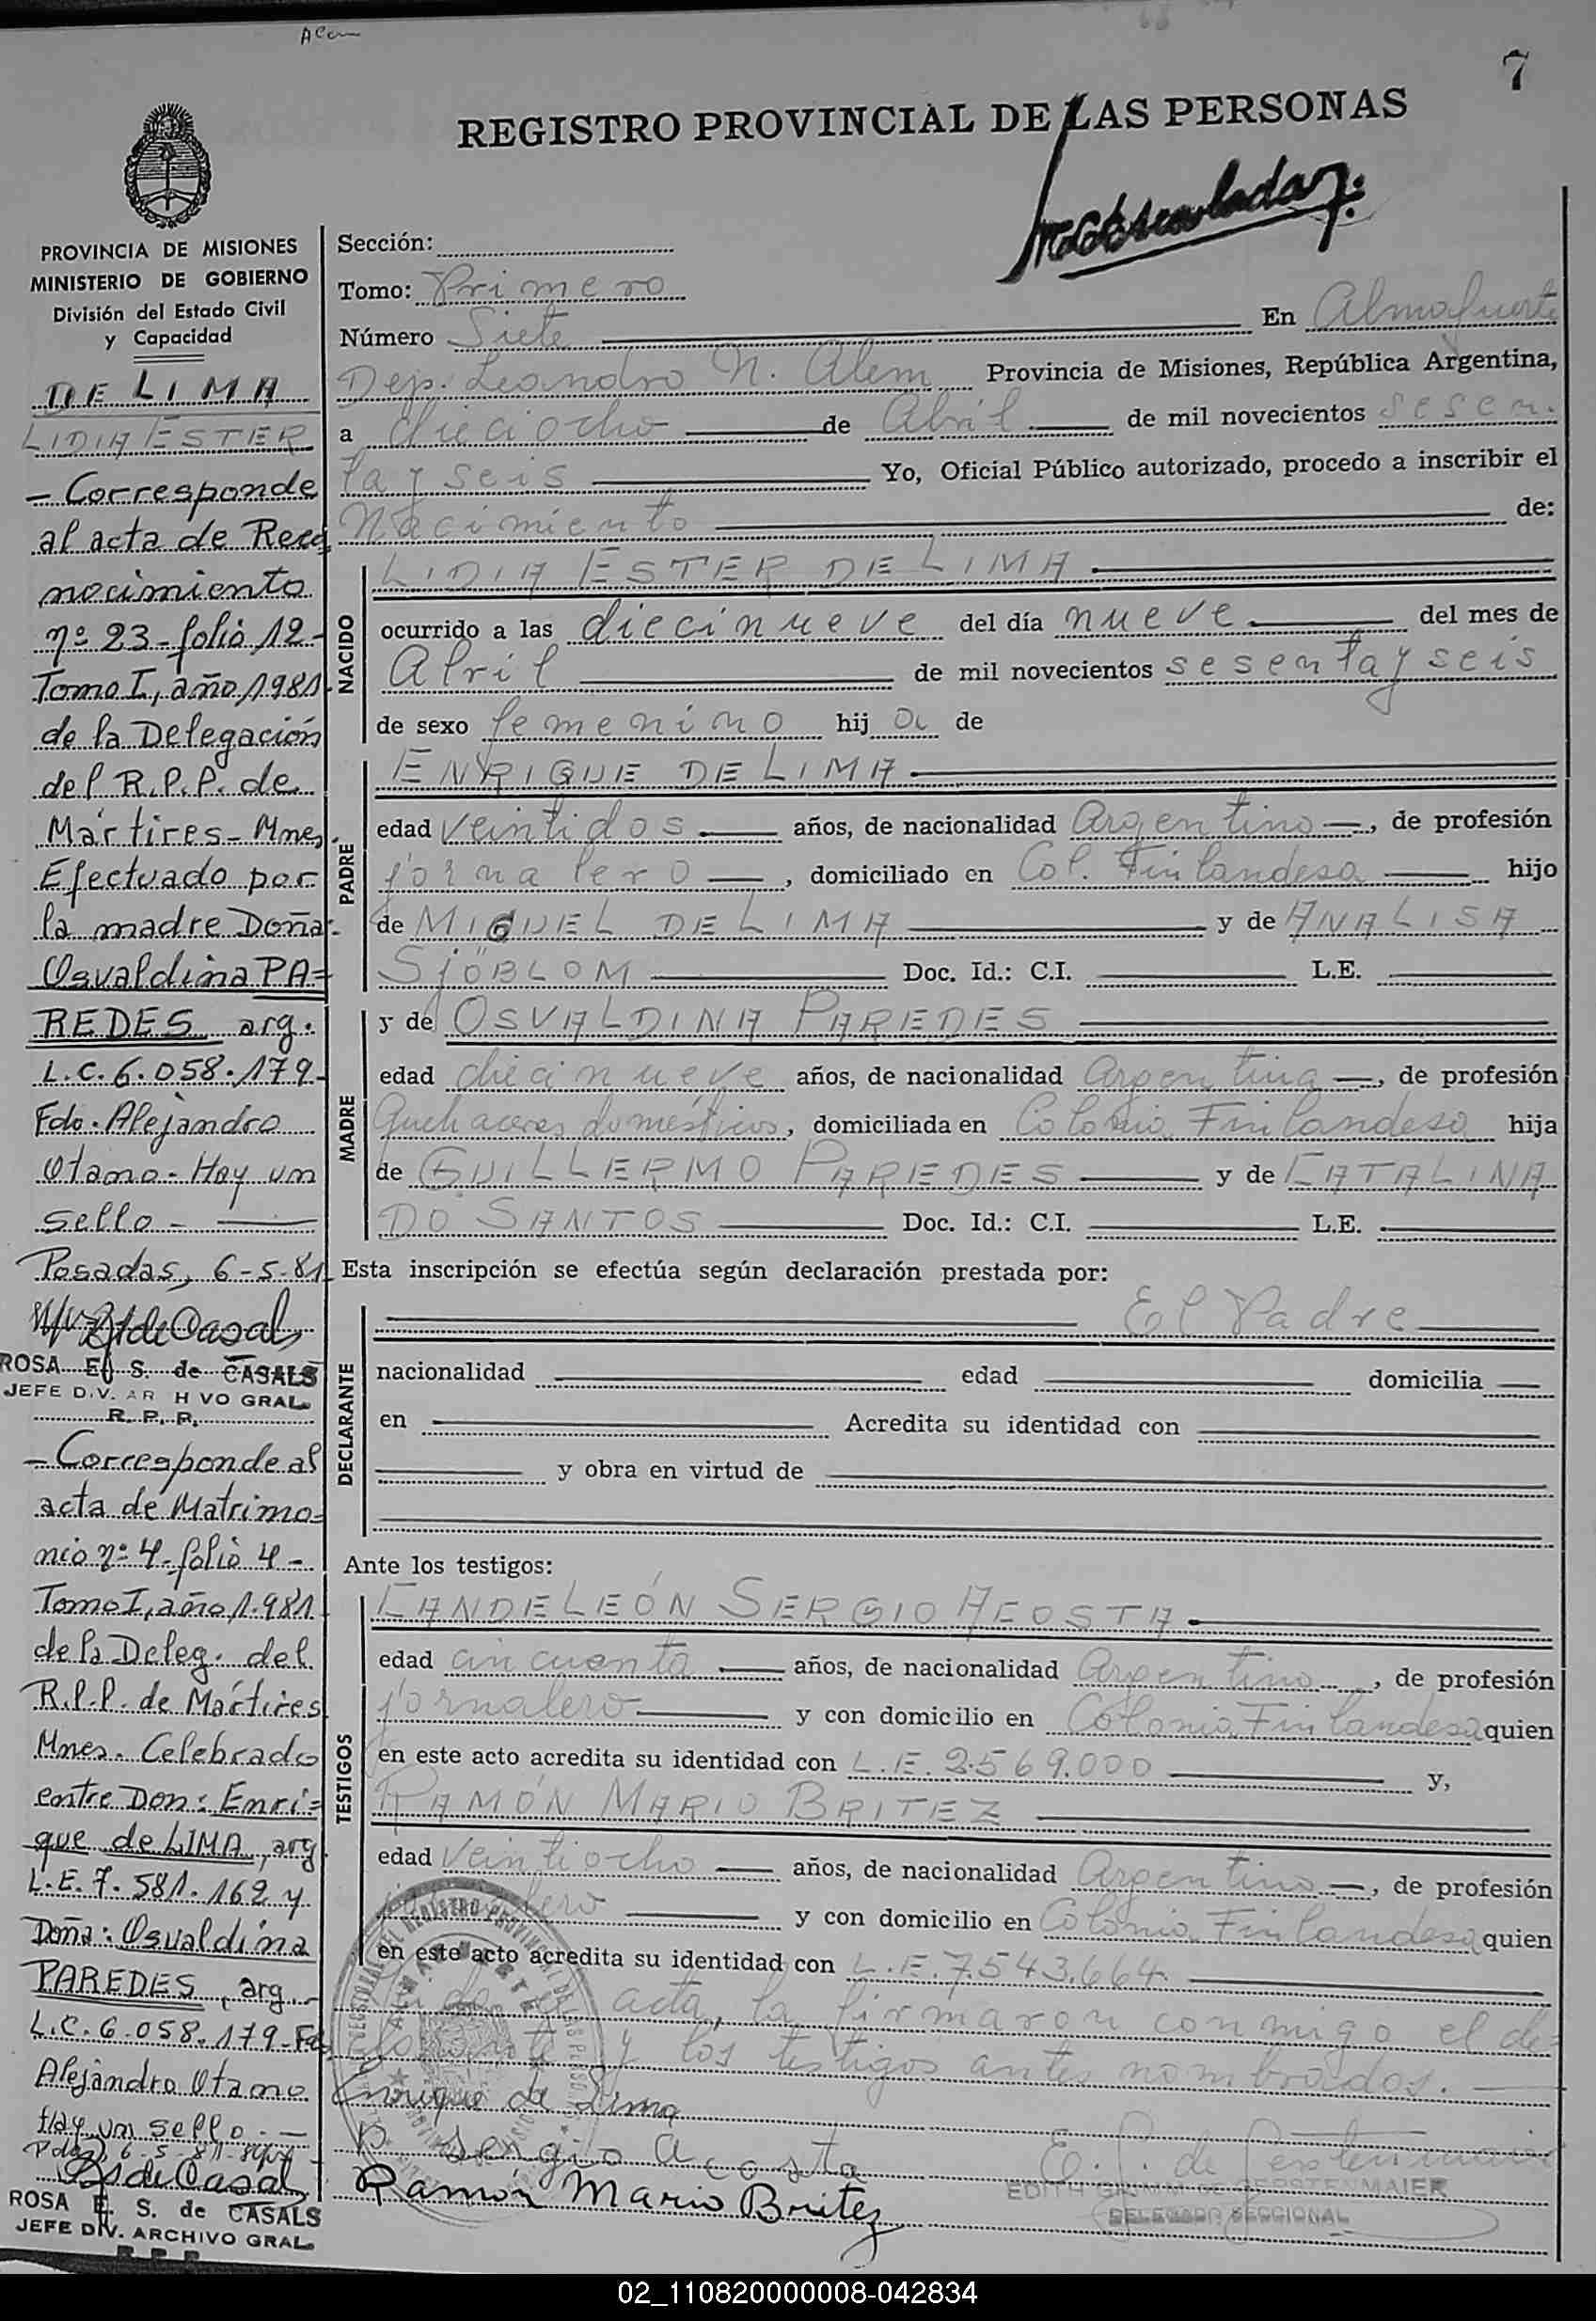 7
REGISTRO PROVINCIAL DE LAS PERSONAS
PROVINCIA DE MISIONES
MINISTERIO DE GOBIERNO
División del Estado Civil
y Capacidad
DE LIMA
LIDIA ESTER
- Corresponde
al acta de Reco
nocimiento
nº 23 - folio 12 -
Tomo I, año 1981
de la Delegación
del R.P.P. de
Mártires - Mnes,
Efectuado por
la madre Doña
Osvaldina PA=
REDES arg.
L.C. 6.058.179 -
Fdo. Alejandro
Otamo - Hay un
sello -
Posadas, 6-5-81
ROSA E. S. de CASALS
JEFE DIV. ARCHIVO GRAL.
R. P. P.
- Corresponde al
acta de Matrimo=
nio nº 4 - folio 4 -
Tomo I, año 1.981
de la Deleg. del
R.P.P. de Mártires
Mnes. Celebrado
entre Don: Enri=
que de LIMA, arg
L.E. 7.581.162 y
Doña: Osvaldina
PAREDES, arg. -
L.C. 6.058.179 - Fdo
Alejandro Otamo
Hay un sello. -
Pdas, 6-5-81
ROSA E. S. de CASALS
JEFE DIV. ARCHIVO GRAL.
R. P. P.
Sección:
Tomo: Primero
Número Siete En Almafuerte
Dep. Leandro N. Alem Provincia de Misiones, República Argentina,
a dieciocho de Abril de mil novecientos sesen-
ta y seis Yo, Oficial Público autorizado, procedo a inscribir el
Nacimiento de:
NACIDO
LIDIA ESTER DE LIMA
ocurrido a las diecinueve del día nueve del mes de
Abril de mil novecientos sesenta y seis
de sexo femenino hij a de
PADRE
ENRIQUE DE LIMA
edad veintidos años, de nacionalidad Argentino, de profesión
jornalero, domiciliado en Col. Finlandesa hijo
de MIGUEL DE LIMA y de ANALISA
SJÖBLOM Doc. Id.: C.I. L.E.
MADRE
y de OSVALDINA PAREDES
edad diecinueve años, de nacionalidad Argentina, de profesión
Quehaceres domésticos, domiciliada en Colonia Finlandesa hija
de GUILLERMO PAREDES y de CATALINA
DO SANTOS Doc. Id.: C.I. L.E.
Esta inscripción se efectúa según declaración prestada por:
DECLARANTE
El Padre
nacionalidad edad domicilia
en Acredita su identidad con
y obra en virtud de
Ante los testigos:
TESTIGOS
CANDELEÓN SERGIO ACOSTA
edad cincuenta años, de nacionalidad Argentino, de profesión
jornalero y con domicilio en Colonia Finlandesa quien
en este acto acredita su identidad con L.E. 2.569.000 y,
RAMÓN MARIO BRITEZ
edad veintiocho años, de nacionalidad Argentino, de profesión
jornalero y con domicilio en Colonia Finlandesa quien
en este acto acredita su identidad con L.E. 7.543.664
acta, la firmaron conmigo el de=
y los testigos antes nombrados.
Enrique de Lima
Sergio Acosta
Ramón Mario Britez
EDITH GRIMM de GERSTENMAIER
DELEGADO SECCIONAL
02_110820000008-042834